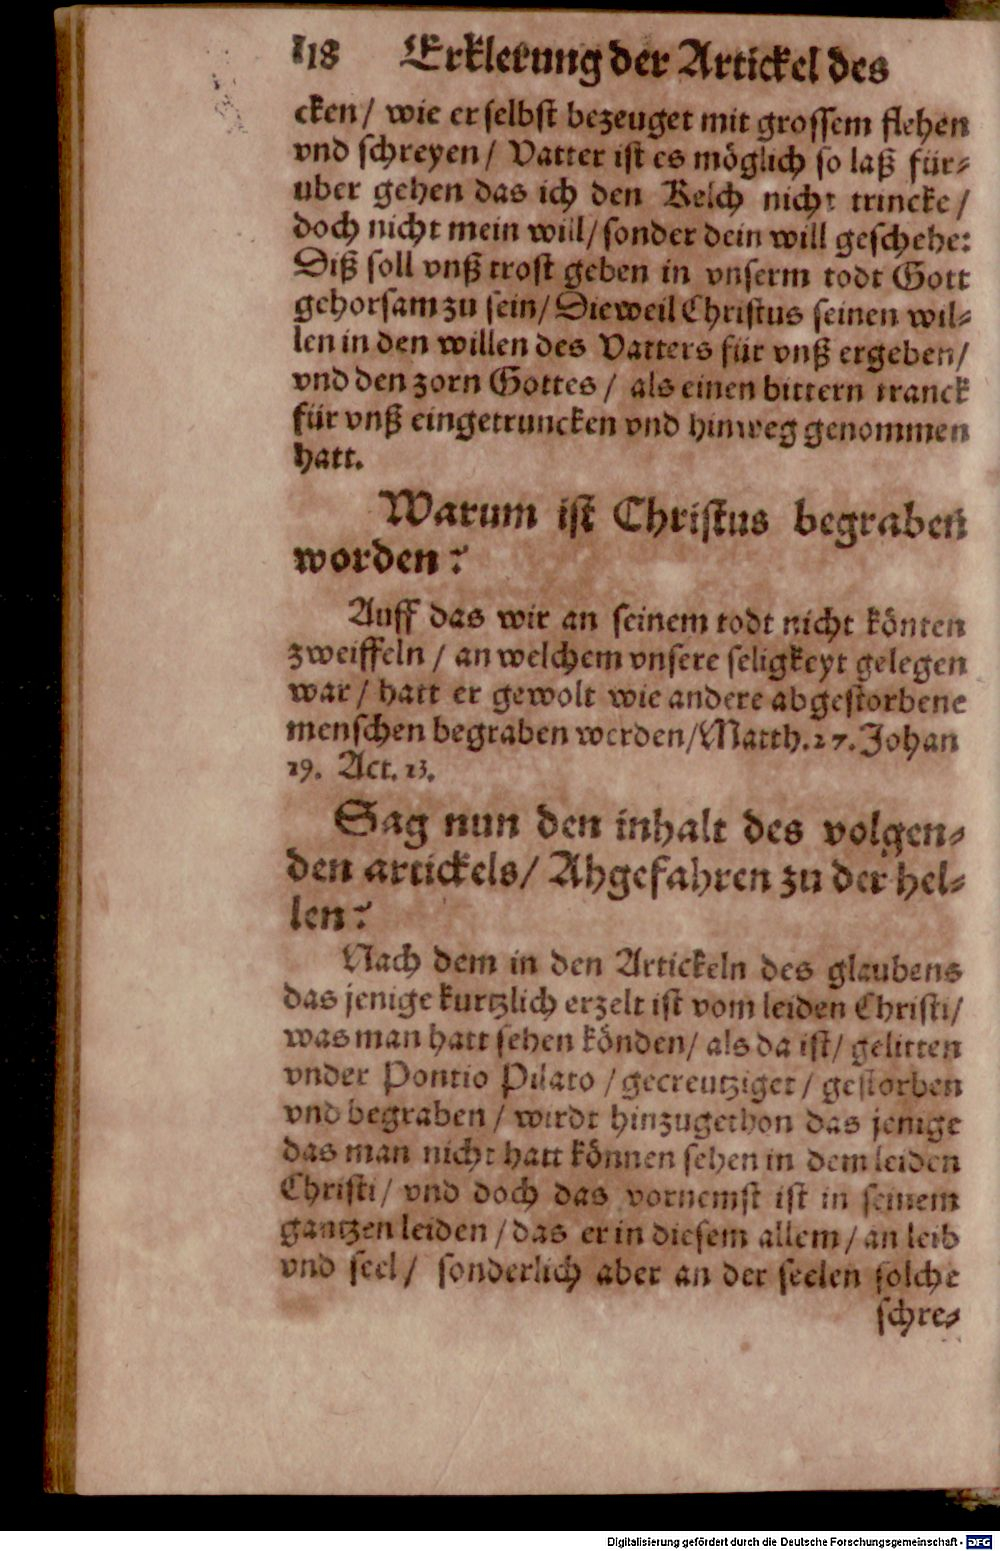 118 Erklerung der Artickel des
cken / wie er selbst bezeuget mit grossem flehen
vnd schreyen / Vatter ist es möglich so laß für⸗
uber gehen das ich den Kelch nicht trincke /
doch nicht mein will / sonder dein will geschehe:
Diß soll vnß trost geben in vnserm todt Gott
gehorsam zu sein / Dieweil Christus seinen wil⸗
len in den willen des Vatters für vnß ergeben /
vnd den zorn Gottes / als einen bittern tranck
für vnß eingetruncken vnd hinweg genommen
hatt.
Warum ist Christus begraben
worden?
Auff das wir an seinem todt nicht könten
zweiffeln / an welchem vnsere seligkeyt gelegen
war / hatt er gewolt wie andere abgestorbene
menschen begraben werden / Matth. 27. Johan
19. Act. 13.
Sag nun den inhalt des volgen⸗
den artickels / Abgefahren zu der hel⸗
len?
Nach dem in den Artickeln des glaubens
das jenige kurtzlich erzelt ist vom leiden Christi /
was man hatt sehen könden / als da ist / gelitten
vnder Pontio Pilato / gecreutziget / gestorben
vnd begraben / wirdt hinzugethon das jenige
das man nicht hatt können sehen in dem leiden
Christi / vnd doch das vornemst ist in seinem
gantzen leiden / das er in diesem allem / an leib
vnd seel / sonderlich aber an der seelen solche
schre⸗
Digitalisierung gefördert durch die Deutsche Forschungsgemeinschaft - DFG